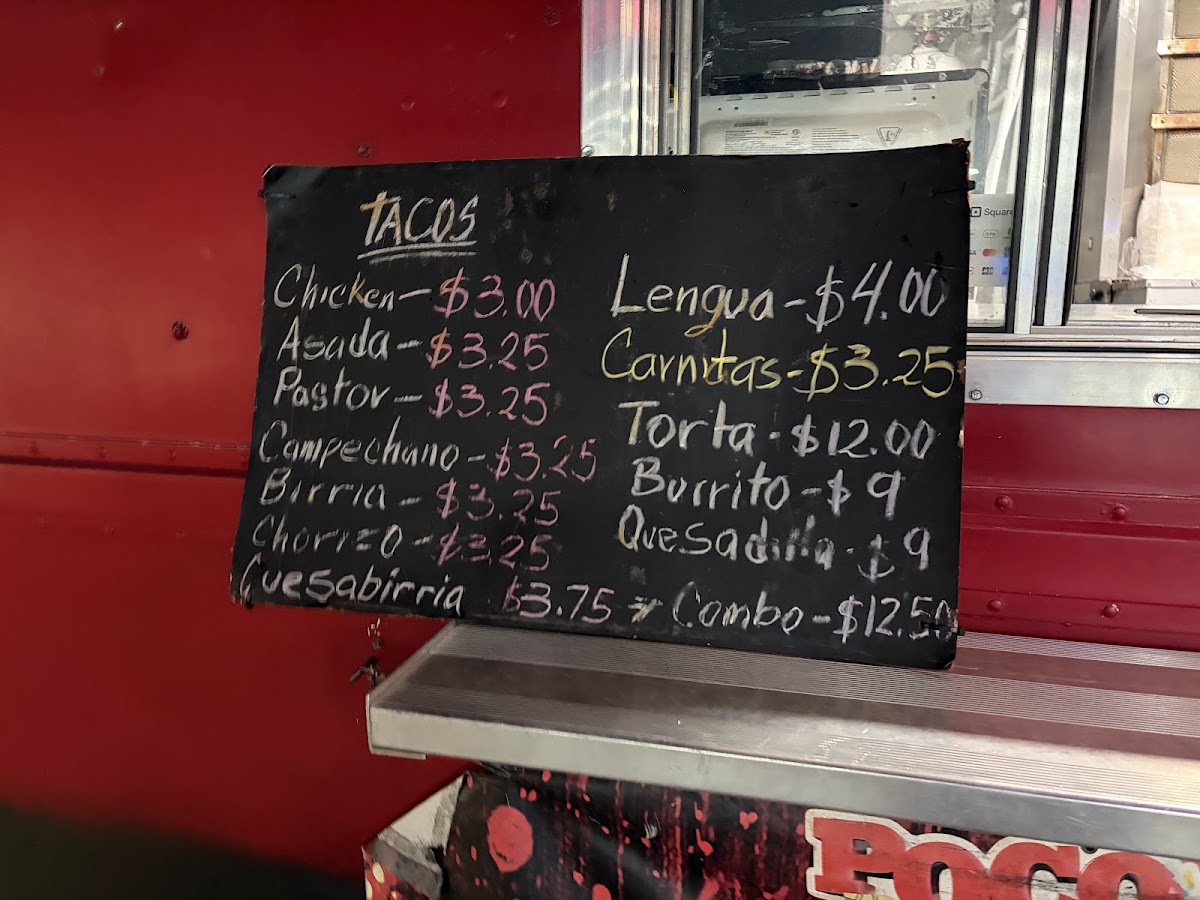 TACOS
Chicken - $3.00
Asada - $3.25
Pastor - $3.25
Campechano - $3.25
Birria - $3.25
Chorizo - $3.25
Quesabirria $3.75 → Combo - $12.50
Lengua - $4.00
Carnitas - $3.25
Torta - $12.00
Burrito - $9
Quesadilla - $9
Square
POCO